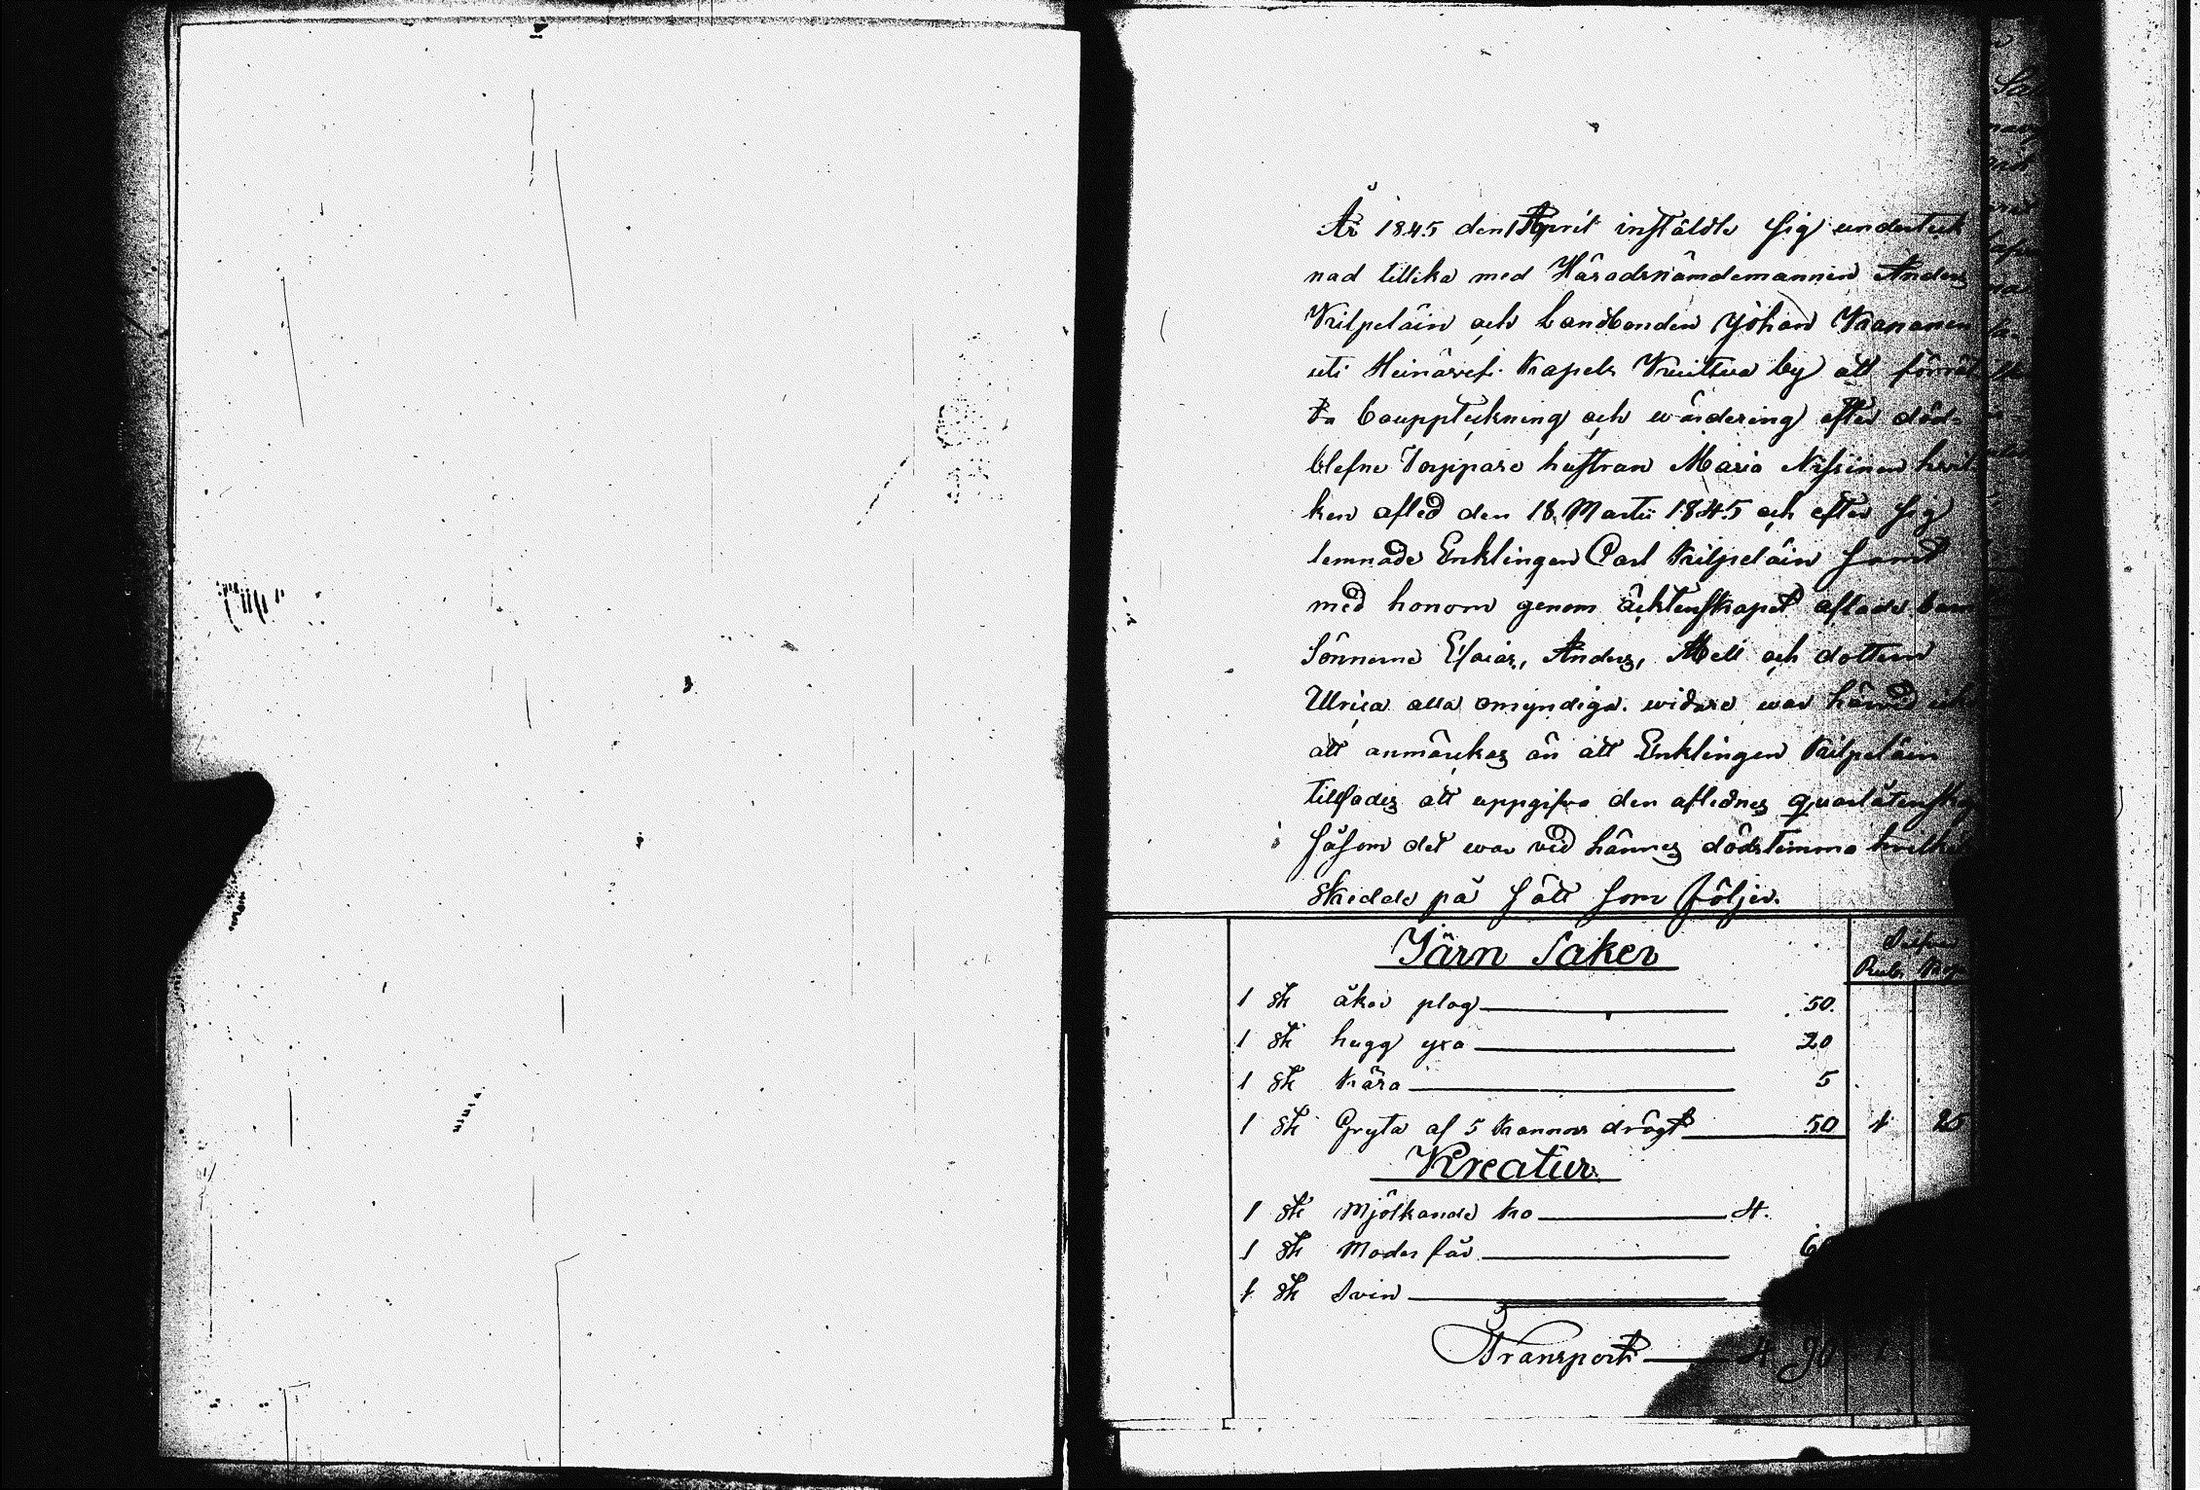 År 1845 den 1 April instäldte sig underteck
nad tillika med Häradsnämdemannen Anders
Kilpeläin och Landbonden Johan Kananen
uti Heinävesi Kapels Kuittua by att förrät
ta bouppteckning och wärdering efter död-
blefne Torppare hustran Maria Nissinen hvil
ken afled den 18 Martii 1845 och efter sig
lemnade Enklingen Carl Kilpeläin samt
med honom genom äcktenskapet aflade barn
Sönnerne Esaias, Anders, Abell och dottern
Ulrica alla omyndiga. widare war härvid icke
att anmärckas än att Enklingen Kilpeläin
tillsades att uppgifva den aflednes quarlåtenskap
såsom det war vid hännes dödstimma hvilket
skedde på sätt som följer.
Järn Saker
Silfver
Rub. Kop
1 st åker plog 50.
1 st hugg yxa 20
1 st skära 5
1 st Gryta af 5 Kannors drägt 50 1 25
Kreatur
1 st Mjölkande ko 4.
1 st Moder får 6
1 st Svin
Transport 4 90 1